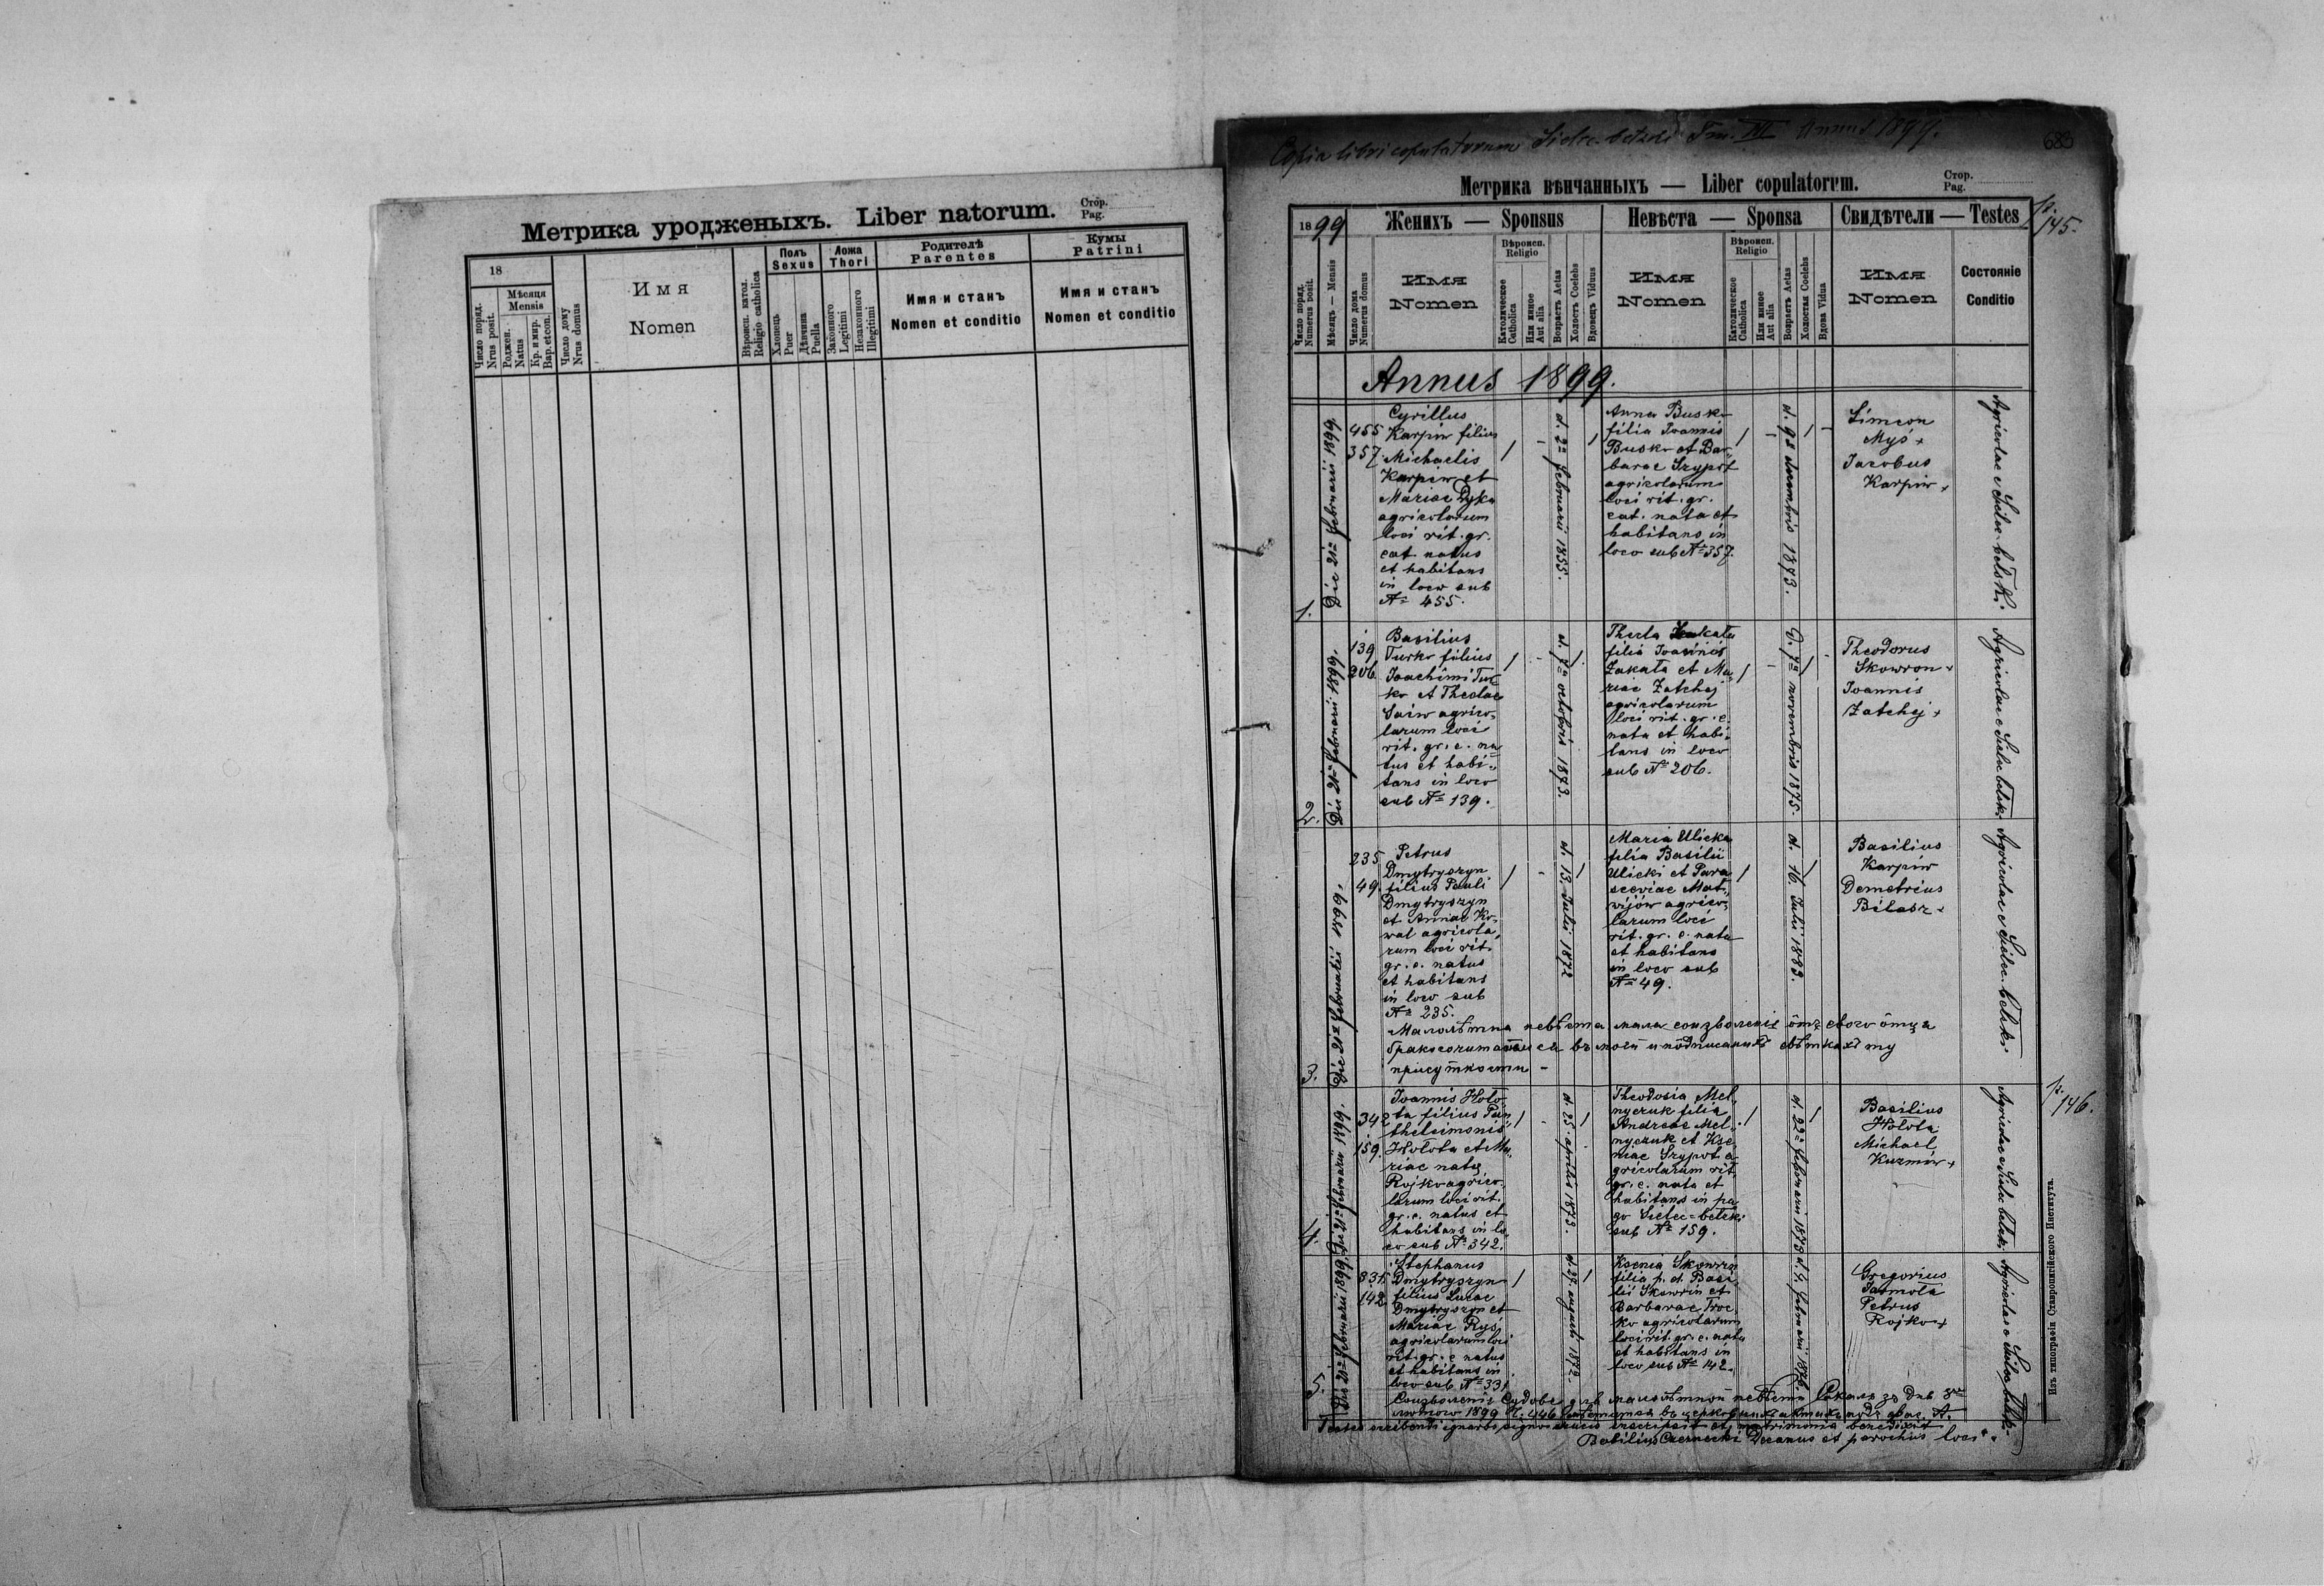 Метрика уродженыхъ. Liber natorum.
Стор.
Pag.
18
Мѣсяця
Mensis
Число поряд.
Nrus posit.
Роджен.
Natus
Кр. и мир.
Bap. et con.
Число дому
Nrus domus
Имя
Nomen
Вѣроисп. катол.
Religio catholica
Полъ
Sexus
Хлопець
Puer
Дѣвчина
Puella
Ложа
Thori
Законного
Legitimi
Незаконного
Illegitimi
Родителѣ
Parentes
Имя и станъ
Nomen et conditio
Кумы
Patrini
Имя и станъ
Nomen et conditio
Copia libri copulatorum Sielec-bełzki Tm. III Annus 1899.
683
Метрика вѣнчанныхъ — Liber copulatorum.
Стор.
Pag.
p. 145.
1899
Женихъ — Sponsus
Невѣста — Sponsa
Свидѣтели — Testes
Число поряд.
Numerus posit.
Мѣсяцъ — Mensis
Число дома
Numerus domus
Имя
Nomen
Вѣроисп.
Religio
Католическое
Catholica
Или инное
Aut alia
Возрастъ Aetas
Холостъ Coelebs
Вдовецъ Viduus
Имя
Nomen
Вѣроисп.
Religio
Католическое
Catholica
Или инное
Aut alia
Возрастъ Aetas
Холостая Coelebs
Вдова Vidua
Имя
Nomen
Состояніе
Conditio
Annus 1899.
1.
Die 21ª februarii 1899.
455
357.
Cyrillus
Karpiw filius
Michaelis
Karpiw et
Mariae Dyka
agricolarum
loci rit. gr.
cat. natus
et habitans
in loco sub
Nº 455.
d. 2ª februarii 1855.
Anna Busko
filia Joannis
Busko et Bar-
barae Szypot
agricolarum
loci rit. gr.
cat. nata et
habitans in
loco sub Nº 357.
d. 9ª decembris 1873.
Simeon
Myś +
Jacobus
Karpiw +
Agricolae e Sielec-bełzki.
2.
Die 21ª februarii 1899.
139
206
Basilius
Turko filius
Joachimi Tur-
ko et Theclae
agrico-
larum loci
rit. gr. c. na
tus et habi-
tans in loco
sub Nº 139.
d. 7ª octobris 1873.
Thecla
filia Joannis
Zakała et Ma-
riae Zatchej
agricolarum
loci rit. gr. c.
nata et habi-
tans in loco
sub Nº 206.
d. 7ª novembris 1875.
Theodorus
Skowron +
Joannes
Zatchej +
Agricolae e Sielec bełzki
3.
Die 21ª februarii 1899.
235.
49.
Petrus
Dmytryszyn
filius Pauli
Dmytryszyn
et Annae Ko-
wal agricola-
rum loci rit.
gr. c. natus
et habitans
in loco sub
Nº 235.
d. 13. Julii 1872
Maria Ulicka
filia Basilii
Ulicki et Para
sceviae Mat-
wijów agrico-
larum loci
rit. gr. c. nata
et habitans
in loco sub
Nº 49.
d. 16. Julii 1883.
Basilius
Karpiw
Demetrius
Biłasz +
Agricolae e Sielec-bełzki.
Малолѣтна невѣста мала соизволеніе отъ свого отця
въ моєй и подписаныхъ свѣткахъ ту
присутности -
p. 146.
4.
Die 21ª februarii 1899.
342
159.
Joannis Hoło-
ta filius Pan
theleimonis
Hołota et Ma-
riae natae
Rojko agrico-
larum loci rit.
gr. c. natus et
habitans in lo-
co sub Nº 342.
d. 25. aprilis 1873.
Theodosia Mel-
nyczuk filia
Andreae Mel-
nyczuk et Kse-
niae Szypot a-
gricolarum rit.
gr. c. nata et
habitans in pa-
go Sielec-bełzki
sub Nº 159.
d. 22ª februarii 1873
Basilius
Hołota
Michael
Kuzmiw +
Agricolae e Sielec bełzki.
5.
Die 21ª februarii 1899
331.
142
Stephanus
Dmytryszyn
filius Lucae
Dmytryszyn et
Mariae Ryś
agricolarum loci
rit. gr. c natus
et habitans in
loco sub Nº 331
d. 27. augusti 1872.
Ksenia Skowron
filia p. d. Basi-
lii Skowron et
Barbarae Troc-
ko agricolarum
loci rit. gr. c. nata
et habitans in
loco sub Nº 142.
d. 4. februarii 1876.
Gregorius
Jarmoła
Petrus
Rojko +
Agricolae e Sielec bełzki
Соизволеніе Судове для малолѣтной невѣсты Сокаль зъ дня 3го
лютого 1899 Ч. 446 въ подъ фас. А.
Testes scribendi ignaros signo crucis inscripsit et matrimonia benedixit
Basilius Czernecki Decanus et parochus loci.
Изъ типографіи Ставропигійского Института.